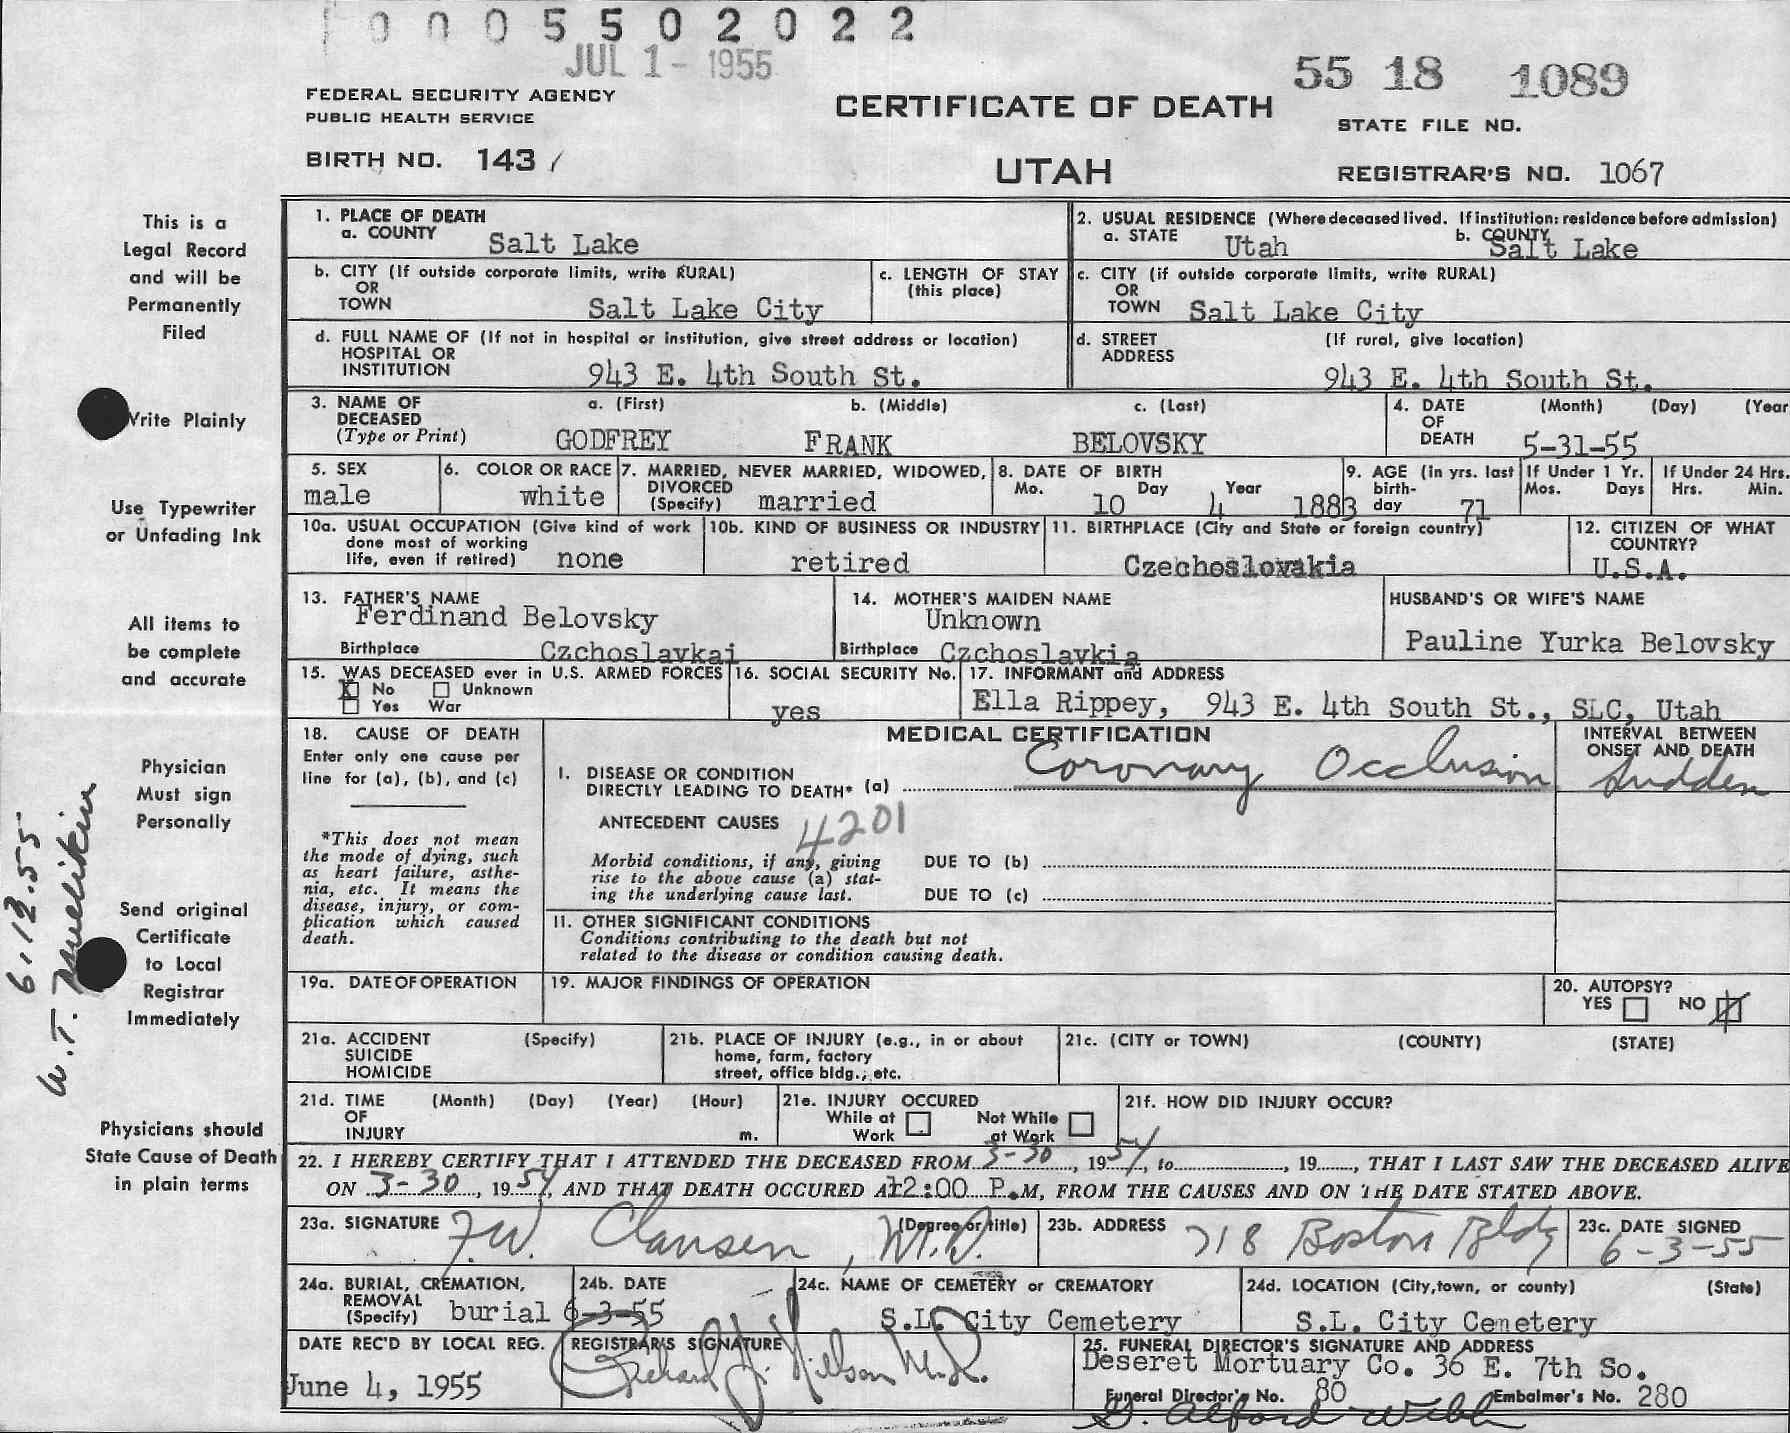 0005502022
JUL 1 - 1955
55 18 1089
FEDERAL SECURITY AGENCY
PUBLIC HEALTH SERVICE
CERTIFICATE OF DEATH
STATE FILE NO.
BIRTH NO. 143
UTAH
REGISTRAR'S NO. 1067
This is a
Legal Record
and will be
Permanently
Filed
Write Plainly
Use Typewriter
or Unfading Ink
All items to
be complete
and accurate
Physician
Must sign
Personally
Send original
Certificate
to Local
Registrar
Immediately
Physicians should
State Cause of Death
in plain terms
6.13.55
W.T.
1. PLACE OF DEATH
a. COUNTY Salt Lake
2. USUAL RESIDENCE (Where deceased lived. If institution: residence before admission)
a. STATE Utah b. COUNTY Salt Lake
b. CITY (If outside corporate limits, write RURAL)
OR
TOWN Salt Lake City
c. LENGTH OF STAY
(this place)
c. CITY (if outside corporate limits, write RURAL)
OR
TOWN Salt Lake City
d. FULL NAME OF (If not in hospital or institution, give street address or location)
HOSPITAL OR
INSTITUTION 943 E. 4th South St.
d. STREET (If rural, give location)
ADDRESS 943 E. 4th South St.
3. NAME OF a. (First) b. (Middle) c. (Last)
DECEASED
(Type or Print) GODFREY FRANK BELOVSKY
4. DATE (Month) (Day) (Year
OF
DEATH 5-31-55
5. SEX
male
6. COLOR OR RACE
white
7. MARRIED, NEVER MARRIED, WIDOWED,
DIVORCED
(Specify) married
8. DATE OF BIRTH
Mo. Day Year
10 4 1883
9. AGE (in yrs. last
birth-
day 71
If Under 1 Yr.
Mos. Days
If Under 24 Hrs.
Hrs. Min.
10a. USUAL OCCUPATION (Give kind of work
done most of working
life, even if retired) none
10b. KIND OF BUSINESS OR INDUSTRY
retired
11. BIRTHPLACE (City and State or foreign country)
Czechoslovakia
12. CITIZEN OF WHAT
COUNTRY?
U.S.A.
13. FATHER'S NAME
Ferdinand Belovsky
Birthplace Czchoslavkai
14. MOTHER'S MAIDEN NAME
Unknown
Birthplace Czchoslavkia
HUSBAND'S OR WIFE'S NAME
Pauline Yurka Belovsky
15. WAS DECEASED ever in U.S. ARMED FORCES
X No Unknown
Yes War
16. SOCIAL SECURITY No.
yes
17. INFORMANT and ADDRESS
Ella Rippey, 943 E. 4th South St., SLC, Utah
18. CAUSE OF DEATH
Enter only one cause per
line for (a), (b), and (c)
*This does not mean
the mode of dying, such
as heart failure, asthe-
nia, etc. It means the
disease, injury, or com-
plication which caused
death.
MEDICAL CERTIFICATION
I. DISEASE OR CONDITION
DIRECTLY LEADING TO DEATH* (a) Coronary Occlusion
INTERVAL BETWEEN
ONSET AND DEATH
Sudden
ANTECEDENT CAUSES 4201
Morbid conditions, if any, giving
rise to the above cause (a) stat-
ing the underlying cause last.
DUE TO (b)
DUE TO (c)
II. OTHER SIGNIFICANT CONDITIONS
Conditions contributing to the death but not
related to the disease or condition causing death.
19a. DATE OF OPERATION
19. MAJOR FINDINGS OF OPERATION
20. AUTOPSY?
YES NO
21a. ACCIDENT (Specify)
SUICIDE
HOMICIDE
21b. PLACE OF INJURY (e.g., in or about
home, farm, factory
street, office bldg., etc.
21c. (CITY or TOWN) (COUNTY) (STATE)
21d. TIME (Month) (Day) (Year) (Hour)
OF
INJURY m.
21e. INJURY OCCURED
While at Work Not While at Work
21f. HOW DID INJURY OCCUR?
22. I HEREBY CERTIFY THAT I ATTENDED THE DECEASED FROM 3-30, 1954, to, 19, THAT I LAST SAW THE DECEASED ALIVE
ON 3-30, 1954, AND THAT DEATH OCCURED AT 12:00 P.M, FROM THE CAUSES AND ON THE DATE STATED ABOVE.
23a. SIGNATURE (Degree or title)
F.W. Clausen, M.D.
23b. ADDRESS 718 Boston Bldg
23c. DATE SIGNED
6-3-55
24a. BURIAL, CREMATION,
REMOVAL
(Specify) burial
24b. DATE
6-3-55
24c. NAME OF CEMETERY or CREMATORY
S.L. City Cemetery
24d. LOCATION (City, town, or county) (State)
S.L. City Cemetery
DATE REC'D BY LOCAL REG.
June 4, 1955
REGISTRAR'S SIGNATURE
Richard J. Nielson M.D.
25. FUNERAL DIRECTOR'S SIGNATURE AND ADDRESS
Deseret Mortuary Co. 36 E. 7th So.
Funeral Director's No. 80 Embalmer's No. 280
G. Alford Webb